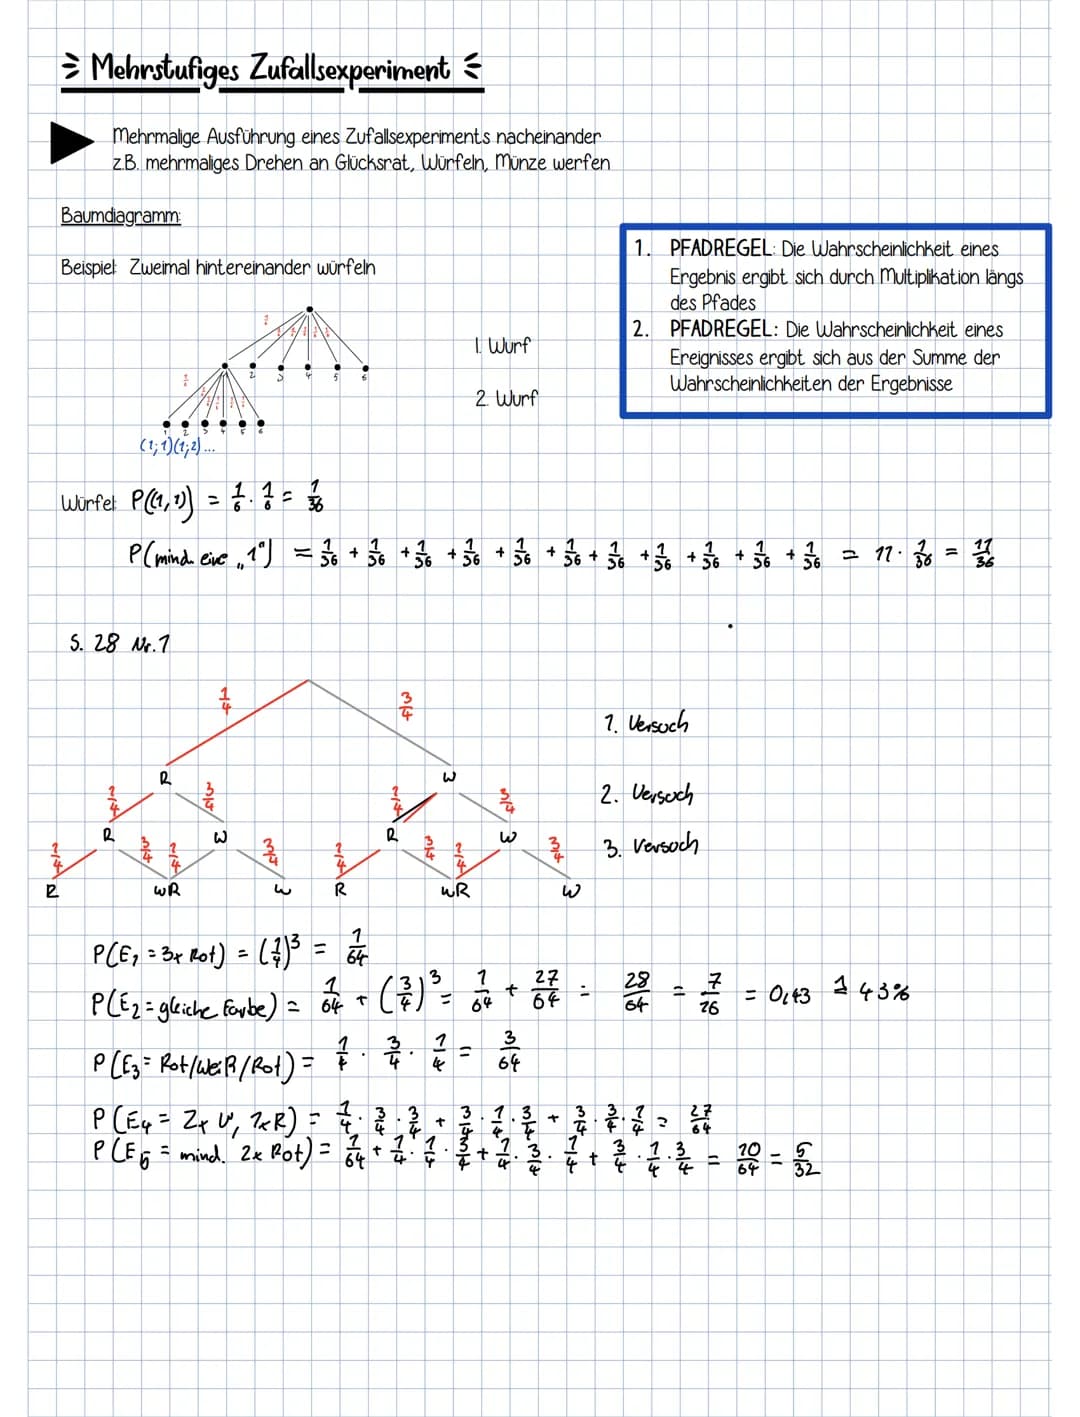 Mehrstufiges Zufallsexperiment
Mehrmalige Ausführung eines Zufallsexperiments nacheinander
z.B. mehrmaliges Drehen an Glücksrat, Würfeln, Münze werfen
Baumdiagramm:
Beispiel: Zweimal hintereinander würfeln
1. PFADREGEL: Die Wahrscheinlichkeit eines
Ergebnis ergibt sich durch Multiplikation längs
des Pfades
2. PFADREGEL: Die Wahrscheinlichkeit eines
Ereignisses ergibt sich aus der Summe der
Wahrscheinlichkeiten der Ergebnisse
1. Wurf
2 3 4 5 6
2. Wurf
1 2 3 4 5 6
(1;1)(1;2)...
Würfel: P((1,1)) = 1/6 · 1/6 = 1/36
P(mind. eine „1") = 1/36 + 1/36 + 1/36 + 1/36 + 1/36 + 1/36 + 1/36 + 1/36 + 1/36 + 1/36 + 1/36 = 11 · 1/36 = 11/36
S. 28 Nr. 1
1/4 3/4
1. Versuch
R W
1/4 3/4 1/4 3/4
2. Versuch
R W R W
1/4 3/4 1/4 3/4 1/4 3/4 1/4 3/4
3. Versuch
R W R W R W R W
P(E1 = 3x Rot) = (1/4)³ = 1/64
P(E2 = gleiche Farbe) = 1/64 + (3/4)³ = 1/64 + 27/64 = 28/64 = 7/16 = 0,43 ≙ 43%
P(E3 = Rot/Weiß/Rot) = 1/4 · 3/4 · 1/4 = 3/64
P(E4 = 2x W, 1x R) = 1/4 · 3/4 · 3/4 + 3/4 · 1/4 · 3/4 + 3/4 · 3/4 · 1/4 = 27/64
P(E5 = mind. 2x Rot) = 1/64 + 1/4 · 1/4 · 3/4 + 1/4 · 3/4 · 1/4 + 3/4 · 1/4 · 3/4 = 10/64 = 5/32